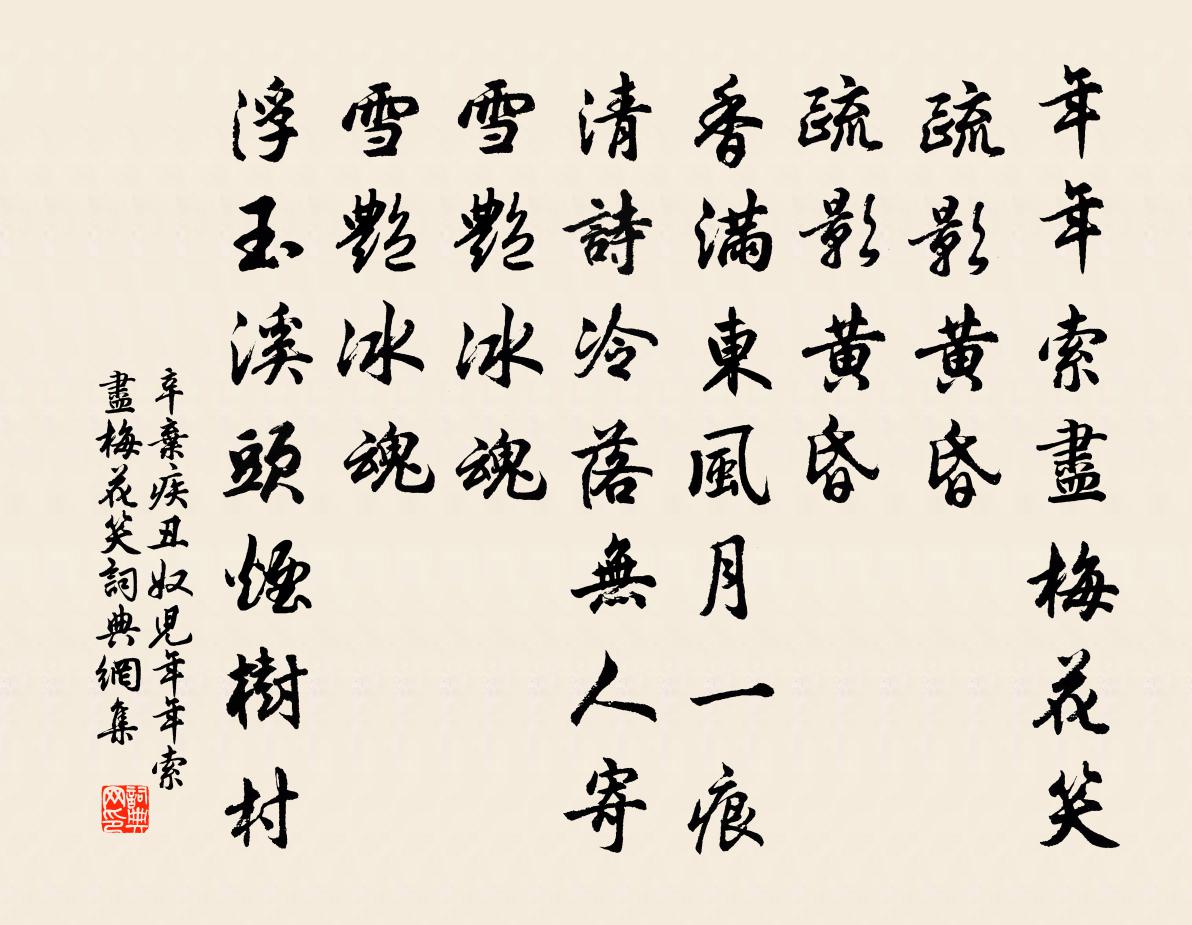 年年索盡梅花笑
疏影黄昏
疏影黄昏
香滿東風月一痕
清詩冷落無人寄
雪艷冰魂
雪艷冰魂
浮玉溪頭煙樹村
辛棄疾丑奴児年年索
盡梅花笑詞典網集
詞典网印